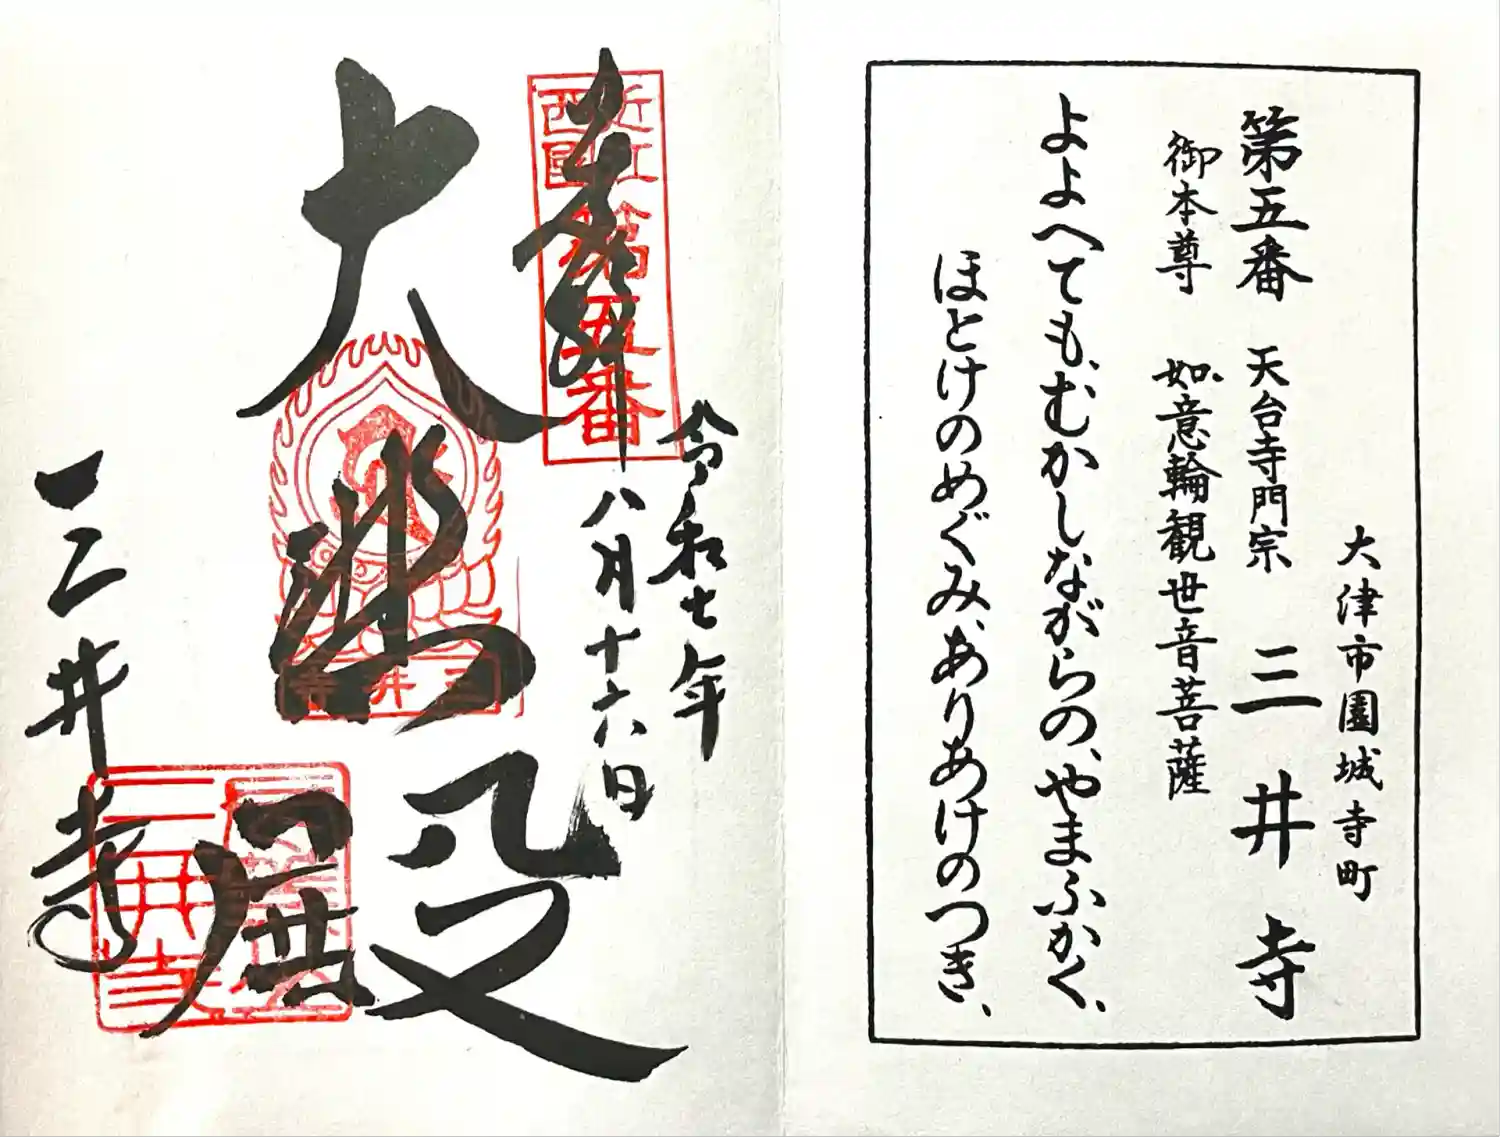 大津市園城寺町
第五番 天台寺門宗 三井寺
御本尊 如意輪観世音菩薩
よよへても、むかしながらの、やまふかく、
ほとけのめぐみ、ありあけのつき、
令和七年
八月十六日
奉拝
近江
西國
第五番
大悲殿
三井寺
三井寺
三井寺